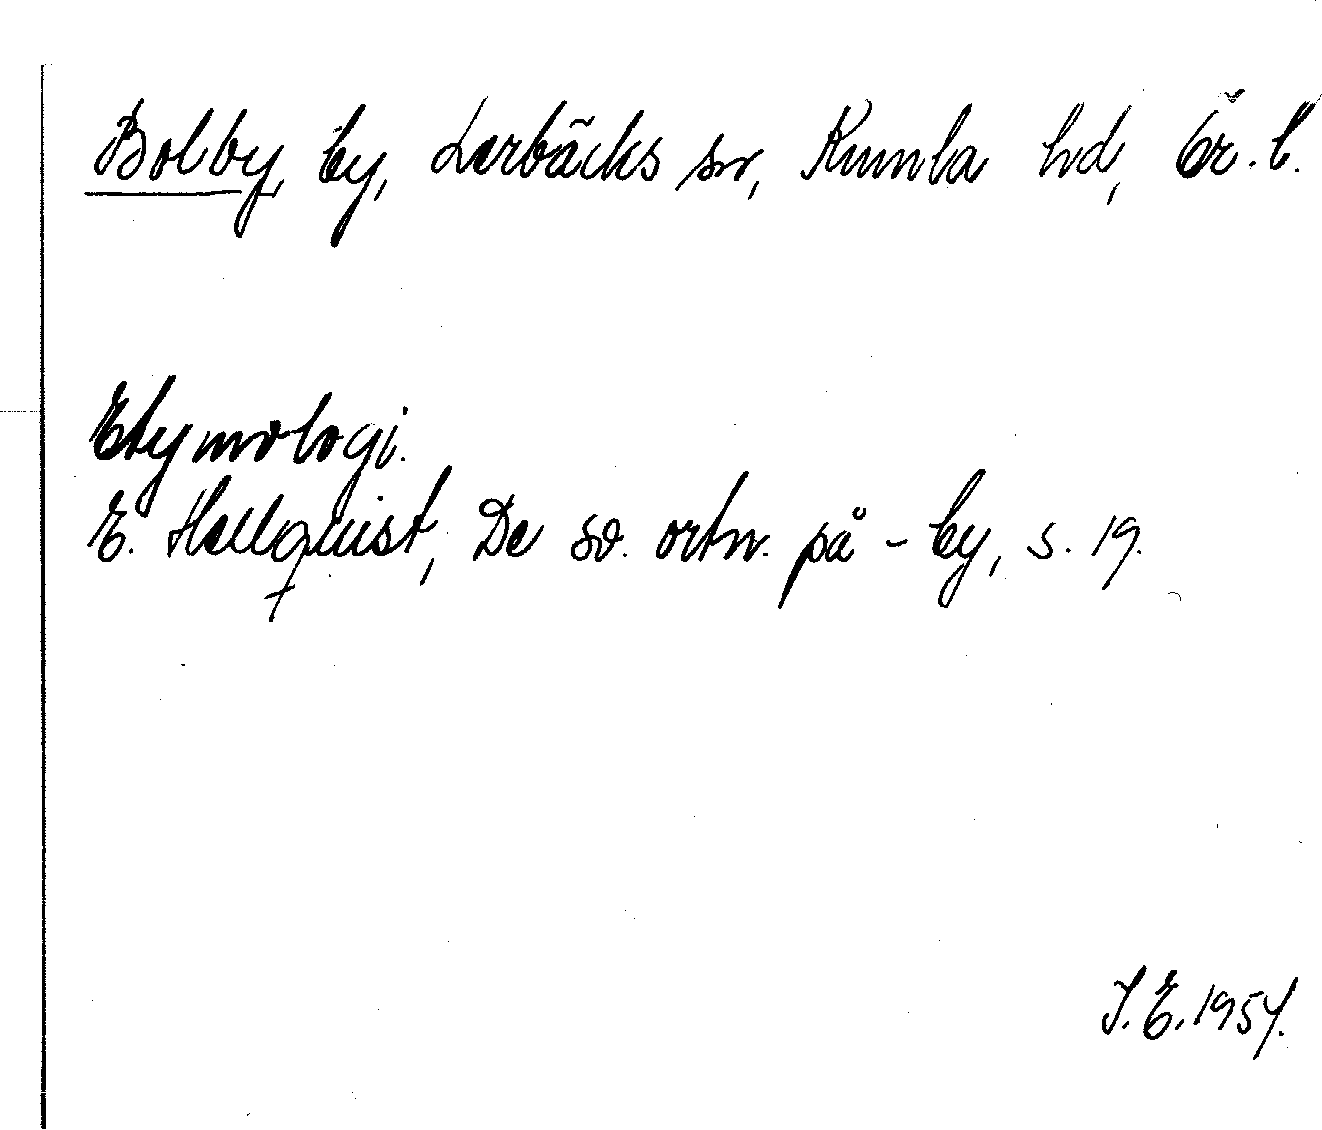 Bolby, by, Lerbäcks sn, Kumla hd, Ör. l.
Etymologi.
E. Hellquist, De sv. ortn. på -by, s. 19.
J. E. 1954.